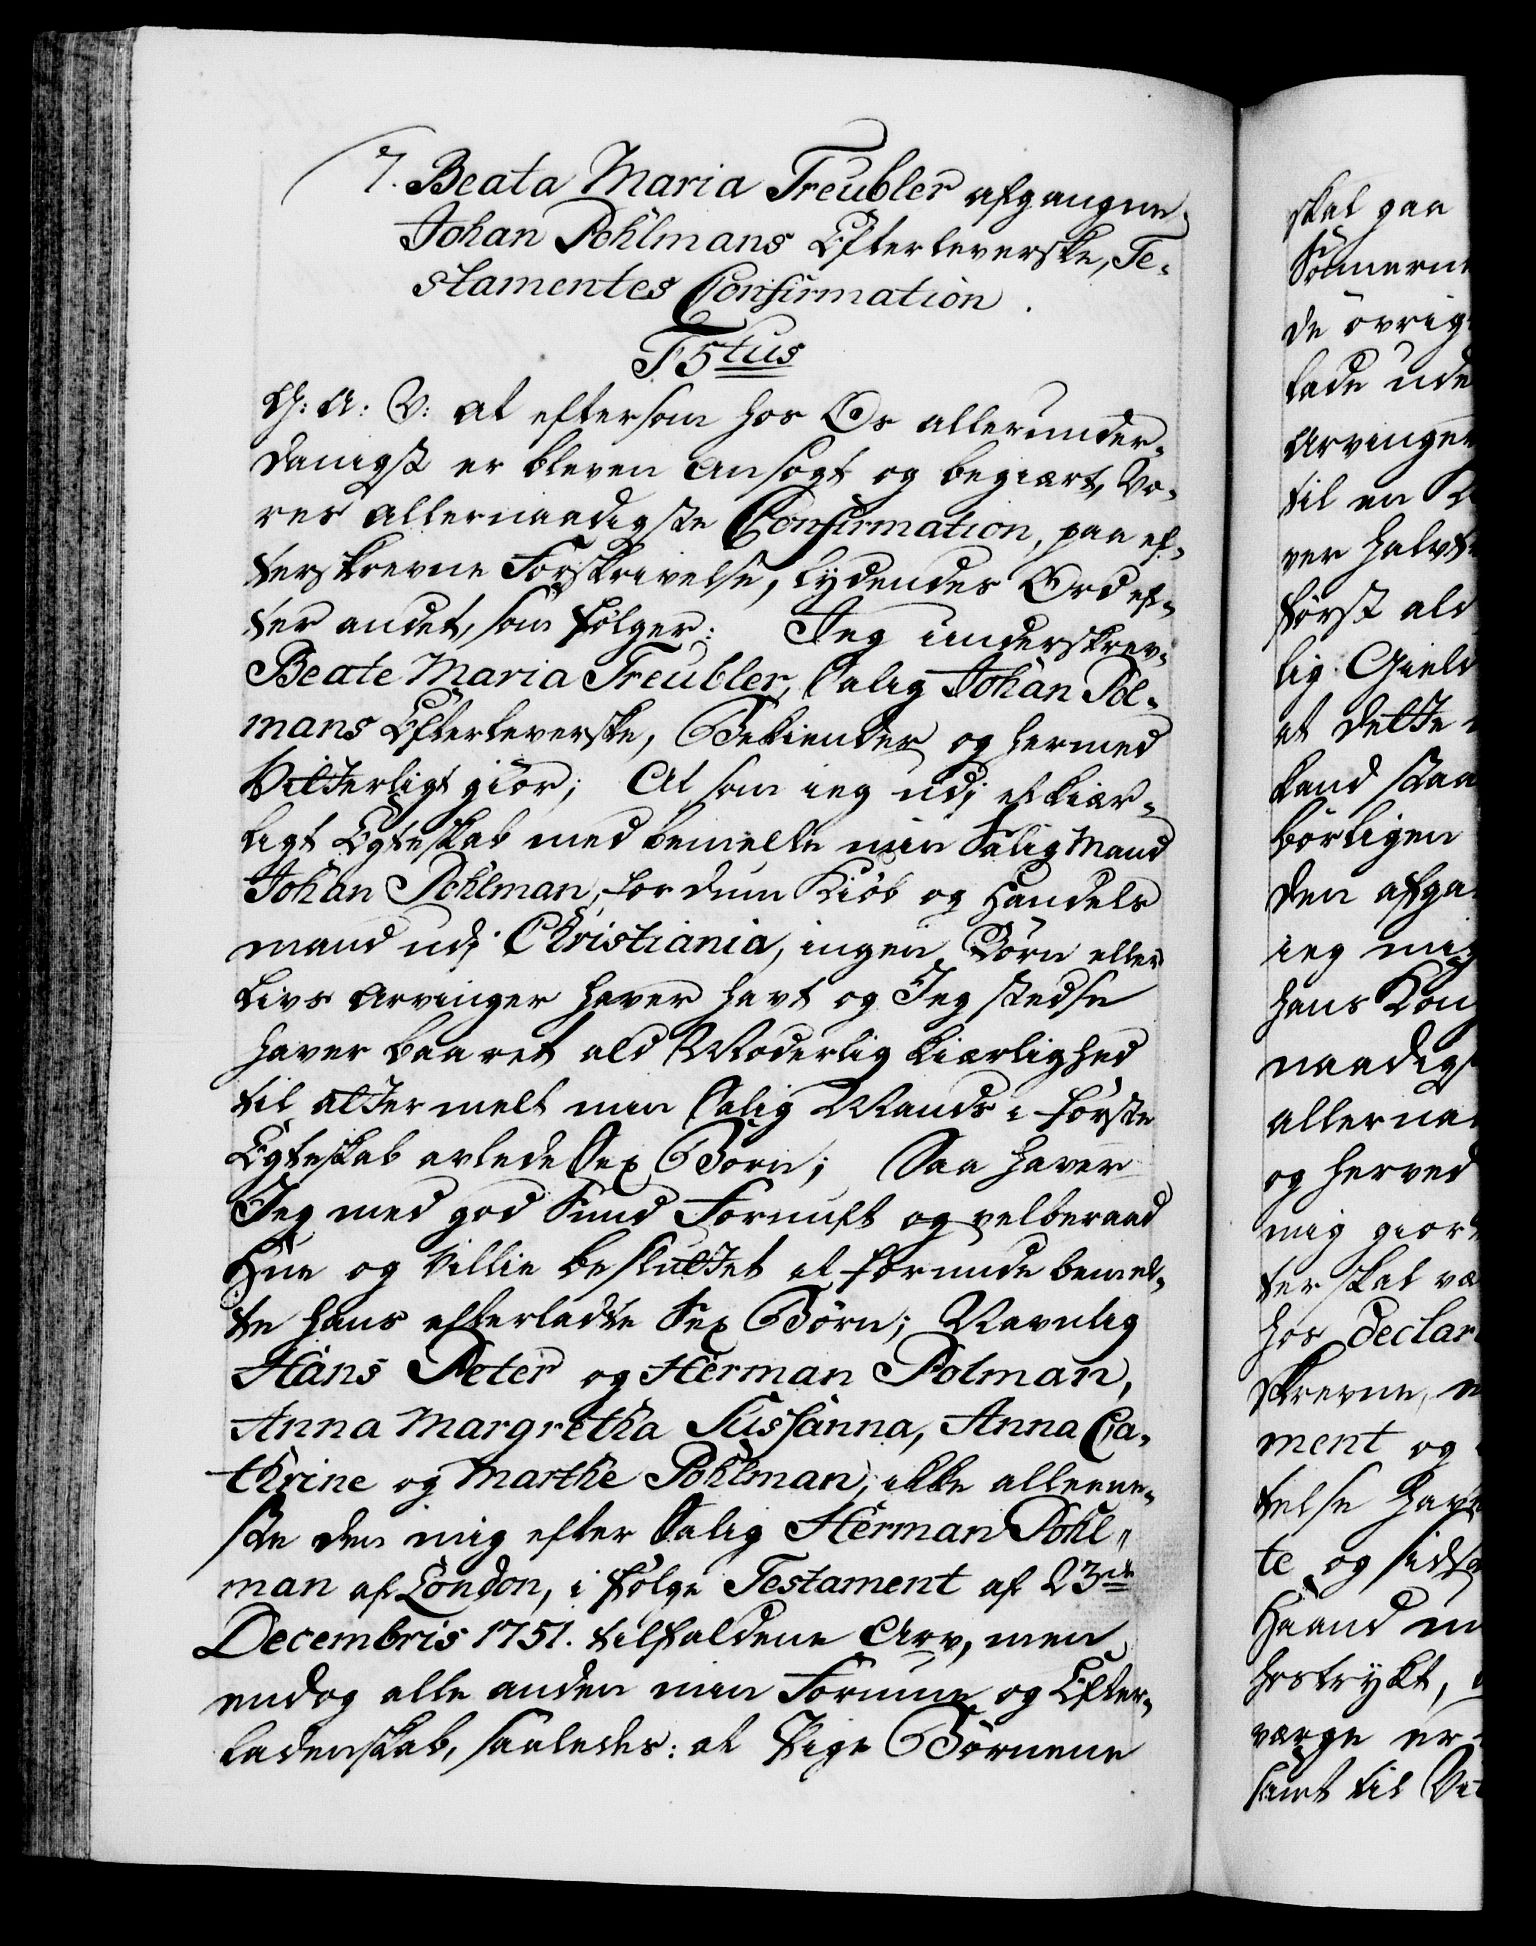 7. Beata Maria Treubler afgangne
Johan Pohlmans Efterleverske, Te-
stamentes Confirmation.
F5tus
G: A: V: at eftersom hos Os allerunder-
danigst er bleven ansogt og begiært, Vo-
res allernaadigste Confirmation, paa ef-
terskrevne Forskrivelse, lydendes Ord ef-
ter andet, som følger: Jeg underskrev:
Beate Maria Treubler, Salig Johan Pol-
mans Efterleverske, Bekiender og hermed
Vitterligt giør; At som ieg udj et kiær-
ligt Egteskab med bemelte min Salig Mand
Johan Pohlman, fordum Kiøb og Handels
mand udj Christiania, ingen Børn eller
Livs Arvinger haver havt og Jeg stedse
haver baaret ald Moderlig Kiærlighed
til altermelt min Salig Mands i første
Egteskab avlede Sex Børn; Saa haver
Jeg med god Sund Fornuft og velberaad
Hue og Villie besluttet at forunde bemel-
te hans efterladte Sex Børn; Navnlig
Hans Peter og Herman Polman,
Anna Margretha Sussanna, Anna Ca-
thrine og Marthe Pohlman, ikke alleene-
ste den mig efter Salig Herman Pohl-
man af London, i følge Testament af 23de
Decembris 1751. tilfaldene Arv, men
endog alle anden min Formue og Efter-
ladenskab, saaledes: at Pige Børnene
skal paa
Sønnerne
de øvrig
lade ude
Arvinger
til en
ver halvt
først ald
lig Gield
at dette
kand staa
børligen
den afga
ieg mig
hans Kon
naadigst
allerna
og herved
mig giort
ter skal væ
hos declar
skrevne
ment og
telse hav
te og sidst
Haand un
hostrykt,
værge er
samt til Vit